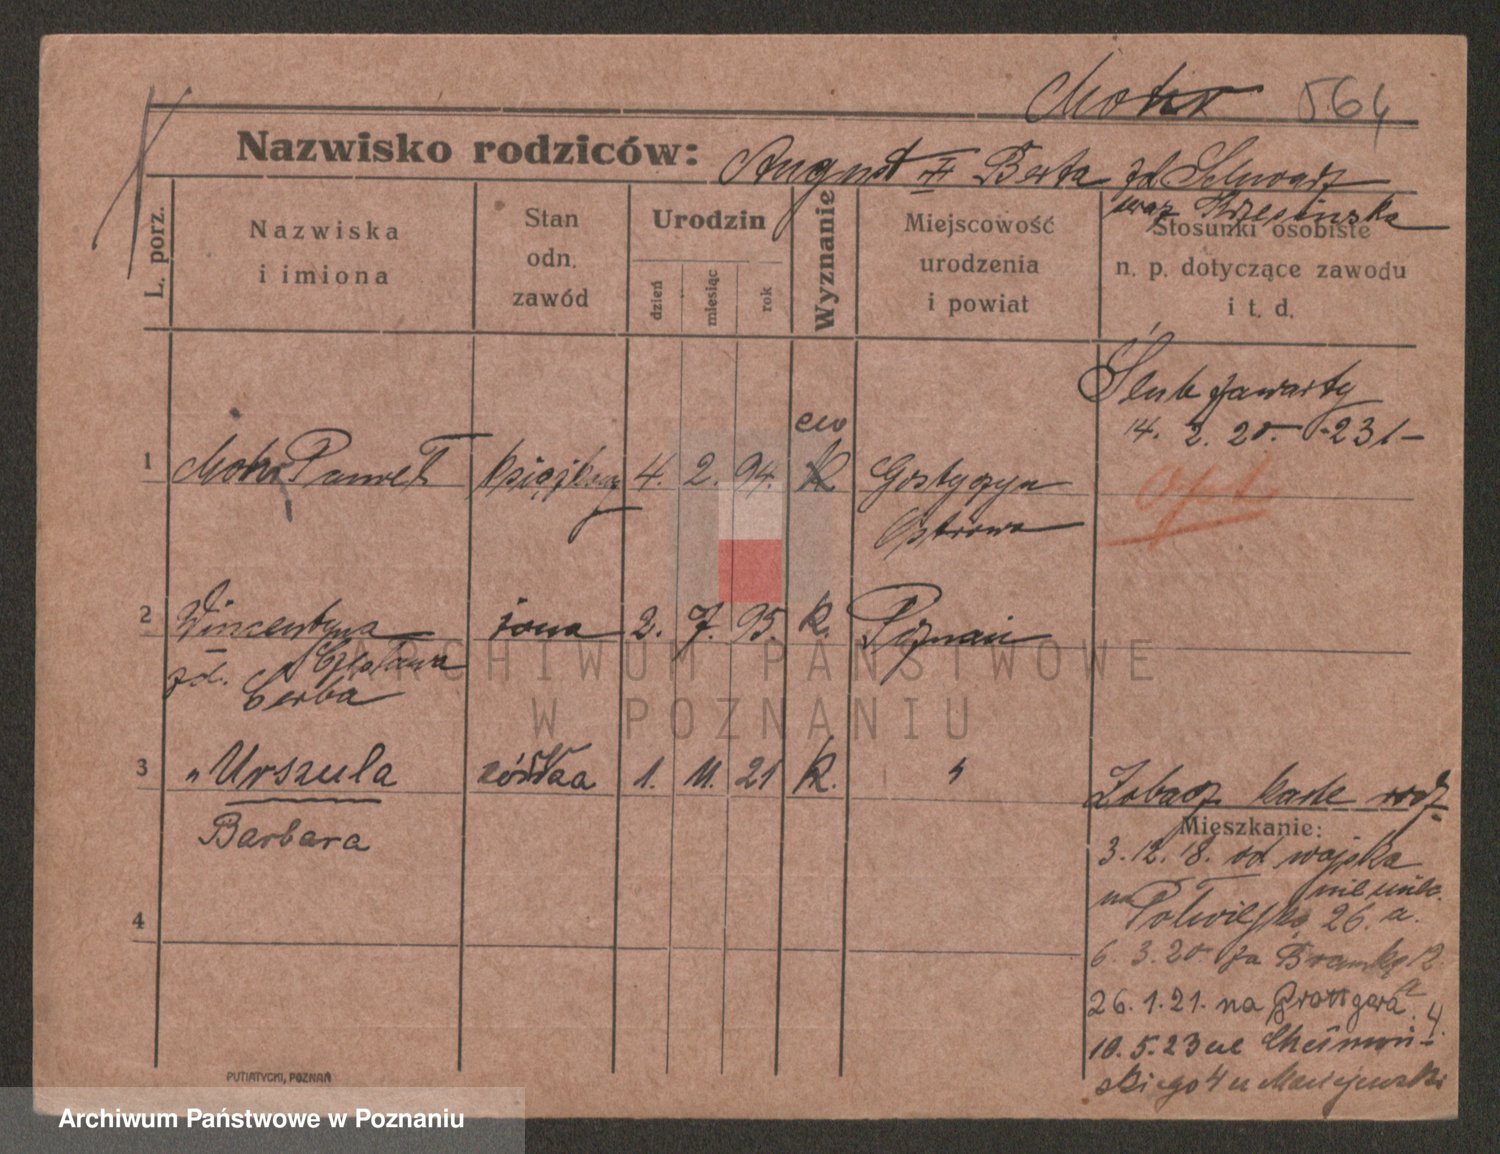 Mohr 564
Nazwisko rodziców: August + Berta zd Schwarz
oraz Brzezińska
L. porz.
Nazwiska i imiona
Stan odn. zawód
Urodzin
dzień
miesiąc
rok
Wyznanie
Miejscowość urodzenia i powiat
Stosunki osobiste n. p. dotyczące zawodu i t. d.
Ślub zawarty
14. 2. 20. -231-
opt.
ew
1 Mohr Paweł książkowy 4. 2. 94. k Gostyczyn
Ostrowo
2 Wincentyna żona 2. 7. 95. k. Poznań
zd. Czesława
Cerba
3 " Urszula córka 1. 11. 21 k. "
Barbara
Zobacz kartę rodz.
Mieszkanie:
3. 12. 18. od wojska
na
26. a.
6. 3. 20. za Bramką 12
a
26. 1. 21. na Grottgera 4.
10. 5. 23 ul Chełmoń-
skiego 4 u Maciejewski
4
PUTIATYCKI, POZNAŃ
ARCHIWUM PAŃSTWOWE
W POZNANIU
Archiwum Państwowe w Poznaniu